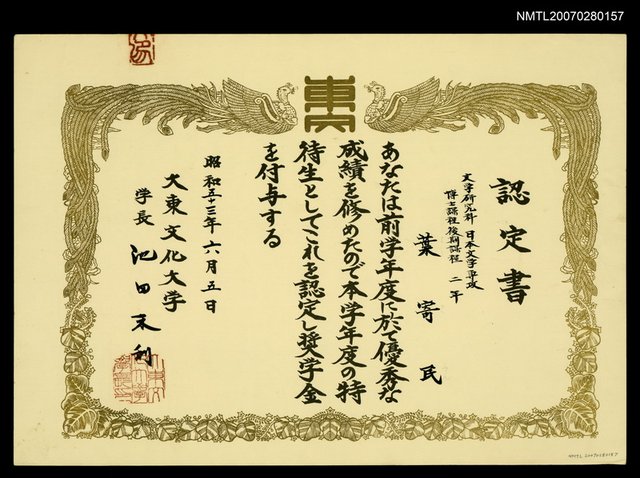 NMTL20070280157
認定書
文学研究科 日本文学専攻
博士課程後期課程 二年
葉寄民
あなたは前学年度に於て優秀な
成績を修めたので本学年度の特
待生としてこれを認定し奨学金
を付与する
昭和五十三年六月五日
大東文化大学
学長 池田末利
NMTL20070280157